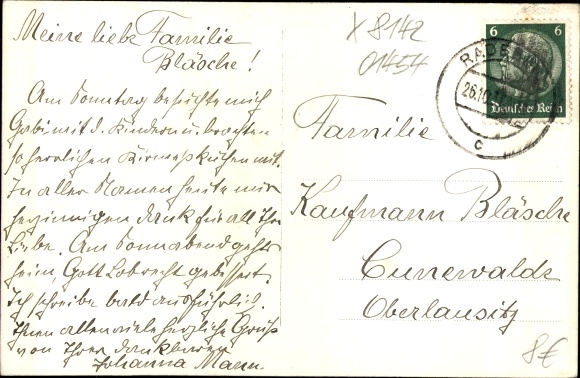 Meine liebe Familie
Bläsche!
Am Sonntag besuchte mich
Gabi mit d. Kindern u. brachten
so herrlichen Kirmeskuchen mit.
In aller Namen heute nur
herzinnigen Dank für all Ihre
Liebe. Am Sonnabend geht's
heim, Gott Lob recht gebessert.
Ich schreibe bald ausführlich.
Ihnen allen viele herzliche Grüße
von Ihrer dankbaren
Johanna Mann.
X 8142
01454
6 6
Deutsches Reich
RADEB
26.10
c
Familie
Kaufmann Bläsche
Cunewalde
Oberlausitz
8€